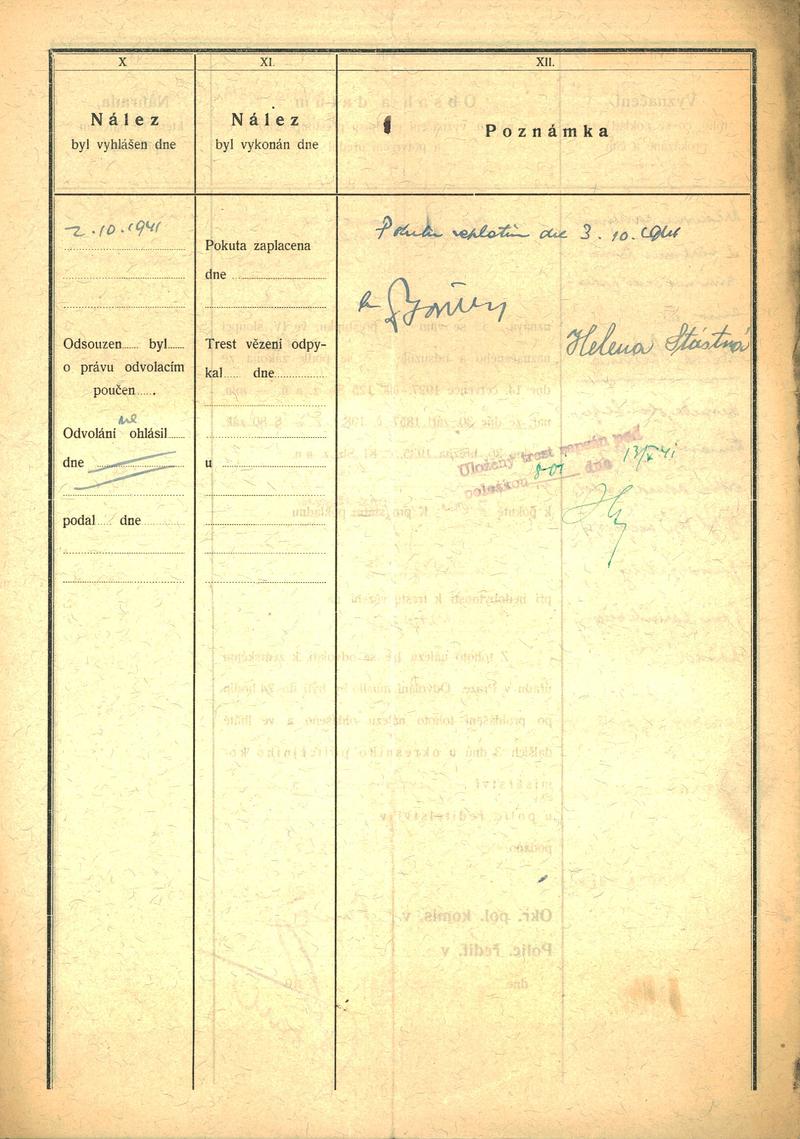 X
Nález
byl vyhlášen dne
2.10.1941
Odsouzen...... byl......
o právu odvolacím
poučen......
ne
Odvolání ohlásil......
dne
podal...... dne
XI.
Nález
byl vykonán dne
Pokuta zaplacena
dne
Trest vězení odpy-
kal...... dne
u
XII.
Poznámka
Pokutu zaplatím dne 3.10.1941
Helena Šťastná
Uložený trest zapsán pod
položkou 801 dne 13/X 41